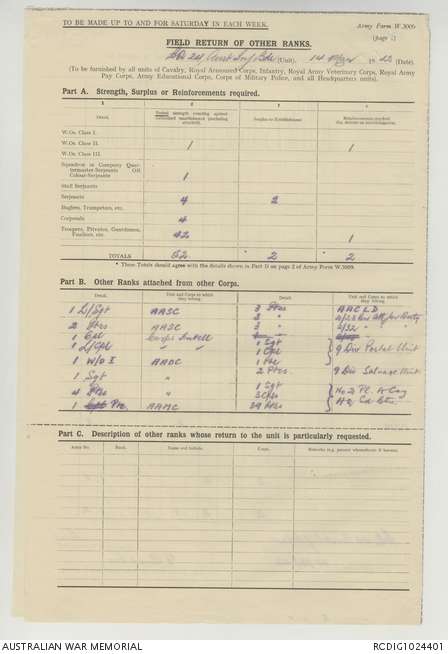 TO BE MADE UP TO AND FOR SATURDAY IN EACH WEEK.
Army Form W.3009
(page 1)
FIELD RETURN OF OTHER RANKS.
HQ 24 Aust Inf Bde (Unit), 14 19 42 (Date)
(To be furnished by all units of Cavalry, Royal Armoured Corps, Infantry, Royal Army Veterinary Corps, Royal Army
Pay Corps, Army Educational Corps, Corps of Military Police, and all Headquarters units).
Part A. Strength, Surplus or Reinforcements required.
1 2 3 4
Detail. Posted strength counting against (including attached). Surplus to Establishment Reinforcements required
W.Os. Class I.
W.Os. Class II. 1 1
W.Os. Class III.
Squadron or Company Quar-
termaster-Serjeants OR
Colour-Serjeants 1
Staff Serjeants
Serjeants 4 2
Buglers, Trumpeters, etc.
Corporals 4
Troopers, Privates, Guardsmen,
Fusiliers, etc. 42 1
TOTALS 52 2 2
* These Totals should agree with the details shown in Part D on page 2 of Army Form W.3009.
Part B. Other Ranks attached from other Corps.
Detail. Unit and Corps to which they belong. Detail. Unit and Corps to which they belong.
1 L/Sgt AASC 3 Ptes AACLD
2 Ptes AASC 3 " 2/32 "
1 Cpl Corps Intell
1 L/Cpl " " 1 Sgt
1 Cpl 9 Div Postal Unit
1 W/O I AAOC 1 Pte
1 Sgt " 2 Ptes. 9 Div Salvage Unit
4 Ptes " 1 Sgt No 2 Pl. A Coy
1 Pte AAMC 29 Ptes
Part C. Description of other ranks whose return to the unit is particularly requested.
Army No. Rank. Name and Initials. Corps. Remarks (e.g. present whereabouts if known).
AUSTRALIAN WAR MEMORIAL
RCDIG1024401